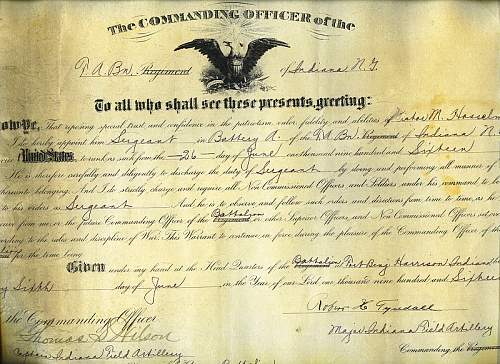 The COMMANDING OFFICER of the
F. A. Bn. Regiment of Indiana N. G.
To all who shall see these presents, greeting:
ow Ye, That reposing special trust and confidence in the patriotism, valor, fidelity and abilities of Victor M. Hasselm
I do hereby appoint him Sergeant in Battery A. of the F. A. Bn. Regiment of Indiana N.
United States to rank as such from the 26 day of June one thousand nine hundred and Sixteen
He is therefore carefully and diligently to discharge the duty of Sergeant by doing and performing all manner of
thereunto belonging. And I do strictly charge and require all Non-Commissioned Officers and Soldiers under his command to be
to his orders as Sergeant And he is to observe and follow such orders and directions from time to time, as he
ceive from me, or the future Commanding Officer of the Regiment Battalion or other Superior Officers and Non-Commissioned Officers set over
ording to the rules and discipline of War. This Warrant to continue in force during the pleasure of the Commanding Officer of the
for the time being.
Given under my hand at the Head Quarters of the Battalion Fort Benj Harrison Indiana th
y Sixth day of June in the Year of our Lord one thousand nine hundred and Sixtee
the Commanding Officer
Robert H. Tyndall
Thomas S. Wilson
Major Indiana Field Artillery
Captain Indiana Field Artillery
Commanding the Regiment